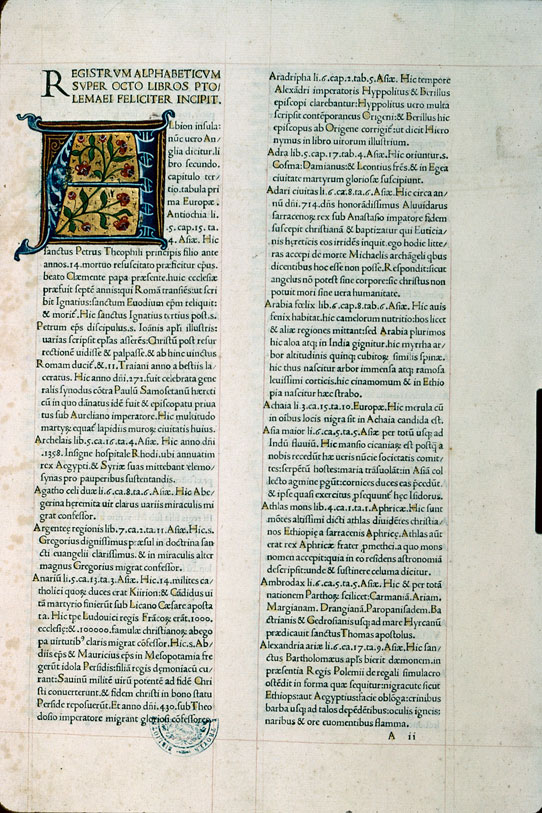 REGISTRVM ALPHABETICVM
SVPER OCTO LIBROS PTO/
LEMAEI FELICITER INCIPIT.
Albion insula:
nũc uero An/
glia dicitur.li
bro secundo.
capitulo ter/
tio.tabula pri
ma Europæ.
Antiochia li.
5.cap.15.ta.
4.Asiæ. Hic
sanctus Petrus Theophili principis filio ante
annos.14.mortuo resuscitato præficitur eps.
beato Clæmente papa præsente.huic ecclesiæ
præfuit septẽ annis:qui Romã transiẽs:ut scri
bit Ignatius:sanctum Euodium epm reliquit:
& morit. Hic sanctus Ignatius tertius post.s.
Petrum eps discipulus.s. Ioãnis apli illustris:
uarias scripsit eplas asserẽs:Christũ post resur
rectionẽ uidisse & palpasse.& ab hinc uinctus
Romam ducit.&.11. Traiani anno a bestiis la/
ceratus. Hic anno dñi.271.fuit celebrata gene
ralis synodus cõtra Paulũ Samosetanũ hæreti
cũ in quo dãnatus idẽ fuit & episcopatu priua
tus sub Aureliano imperatore. Hic multitudo
martyꝝ:equat lapidiũ muroꝝ ciuitatis huius.
Archelais lib.5.ca.16.ta.4.Asiæ. Hic anno dñi
.1358. Insigne hospitale Rhodi.ubi annuatim
rex Aegypti.& Syriæ suas mittebant elemo/
synas pro pauperibus sustentandis.
Agatho celi duæ li.6.ca.8.ta.6.Asiæ. Hic Abe/
gerina heremita uit clarus uariis miraculis mi
grat confessor.
Argenteę regionis lib.7.ca.2.ta.11.Asiæ. Hic.s.
Gregorius dignissimus pręsul in doctrina san/
cti euangelii clarissimus.& in miraculis alter
magnus Gregorius migrat confessor.
Anariũ li.5.ca.13.ta.3.Asiæ. Hic.14.milites ca/
tholici quoꝝ duces erat Kiirion:& Cãdidus ui
tã martyrio finierũt sub Licano Cæsare aposta
ta. Hic tpe Ludouici regis Frãcoꝝ erãt.1000.
ecclesię:&.100000.familiæ christianoꝝ:abego
pa uirtutib⁹ claris migrat cõfessor. Hic.s.Ab/
diis eps & Mauricius eps in Mesopotamia fre
gerũt idola Persidis:filiã regis dęmoniacũ cu/
rant:Sauinũ militẽ uirũ potentẽ ad fidẽ Chri
sti conuerterunt.& fidem christi in bono statu
Perside reposuerũt.Et anno dñi.430.sub Theo
dosio imperatore migrant gloriosi cõfessores.
Aradripha li.6.cap.2.tab.5.Asiæ. Hic tempore
Alexãdri imperatoris Hyppolitus & Berillus
episcopi clarebantur:Hyppolitus uero multa
scripsit contẽporaneus Origeni:& Berillus hic
episcopus ab Origene corrigit:ut dicit Hiero
nymus in libro uirorum illustrium.
Adra lib.5.cap.17.tab.4.Asiæ. Hic oriunt.s.
Cosma:Damianus:& Leontius frẽs.& in Egea
ciuitate martyrum gloriosæ suscipiunt.
Adari ciuitas li.6.ca.8.ta.6.Asiæ. Hic circa an/
nũ dñi.714.dñs honorãdissimus Aluuidarus
sarracenoꝝ rex sub Anastasio impatore fidem
suscepit christianã & baptizatur qui Euticia/
nis hęreticis eos irridẽs inquit.ego hodie litte/
ras accepi de morte Michaelis archãgeli qbus
dicentibus hoc esse non posse. Respondit:sicut
angelus nõ potest sine corpore:sic christus non
potuit mori sine uera humanitate.
Arabia fœlix lib.6.cap.8.tab.6.Asiæ. Hic auis
fenix habitat.hic camelorum nutritio:hos licet
& aliæ regiones mittant:sed Arabia plurimos
hic aloa atq; in India gignitur.hic myrrha ar/
bor altitudinis quinq; cubitoꝝ similis spinæ.
hic thus nascitur arbor immensa atq; ramosa
leuissimi corticis.hic cinamomum & in Ethio
pia nascitur hæc strabo.
Achaia li.3.ca.15.ta.10.Europæ. Hic merula cũ
in oĩbus locis nigra sit in Achaia candida est.
Asia maior li.6.ca.5.ta.5.Asiæ per totũ usq; ad
Indũ fluuiũ. Hic mansio cicaniaꝝ:est postq̃ a
nobis recedũt hæ ueris nũcie societatis comit/
tes:serpẽtũ hostes:maria trãsuolãt:in Asiã col/
lecto agmine pgũt:cornices duces eas pcedũt.
& ipse quasi exercitus psequunt hęc Isidorus.
Athlas mons lib.4.ca.1.ta.1.Aphricæ. Hic sunt
mõtes altissimi dicti athlas diuidẽtes christia/
nos Ethiopię a sarracenis Aphricę. Athlas aũt
erat rex Aphricæ frater pmethei.a quo mons
nomen accepit:quia in eo residens astronomiã
descripsit:unde & sustinere celuma dicitur.
Ambrodax li.6.ca.5.ta.5.Asiæ. Hic & per totã
nationem Parthoꝝ scilicet:Carmaniã.Ariam.
Margianam. Drangianã.Paropanisadem.Ba
ctrianis & Gedrosianis usq; ad mare Hyrcanũ
prædicauit sanctus Thomas apostolus.
Alexandria ariæ li.6.ca.17.ta.9.Asiæ. Hic san/
ctus Bartholomæus apls bierit dæmonem.in
præsentia Regis Polemii de regali simulacro
ostẽdit in forma quæ sequitur:nigra cute sicut
Ethiops:aut Aegyptius:facie oblõga:crinibus
barba usq; ad talos depẽdẽtibus:oculis igneis:
naribus & ore euomentibus flamma.
A ii